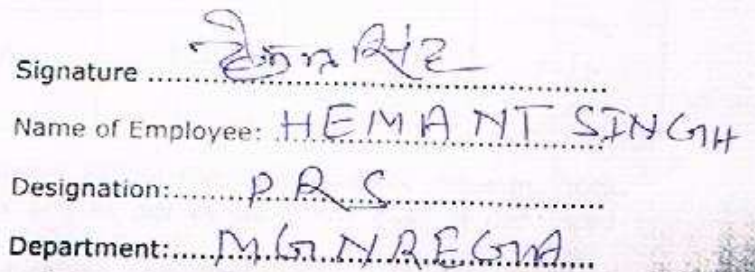 Signature .......... हेमन्त सिंह
Name of Employee: HEMANT SINGH
Designation: PRS
Department: MGNREGA